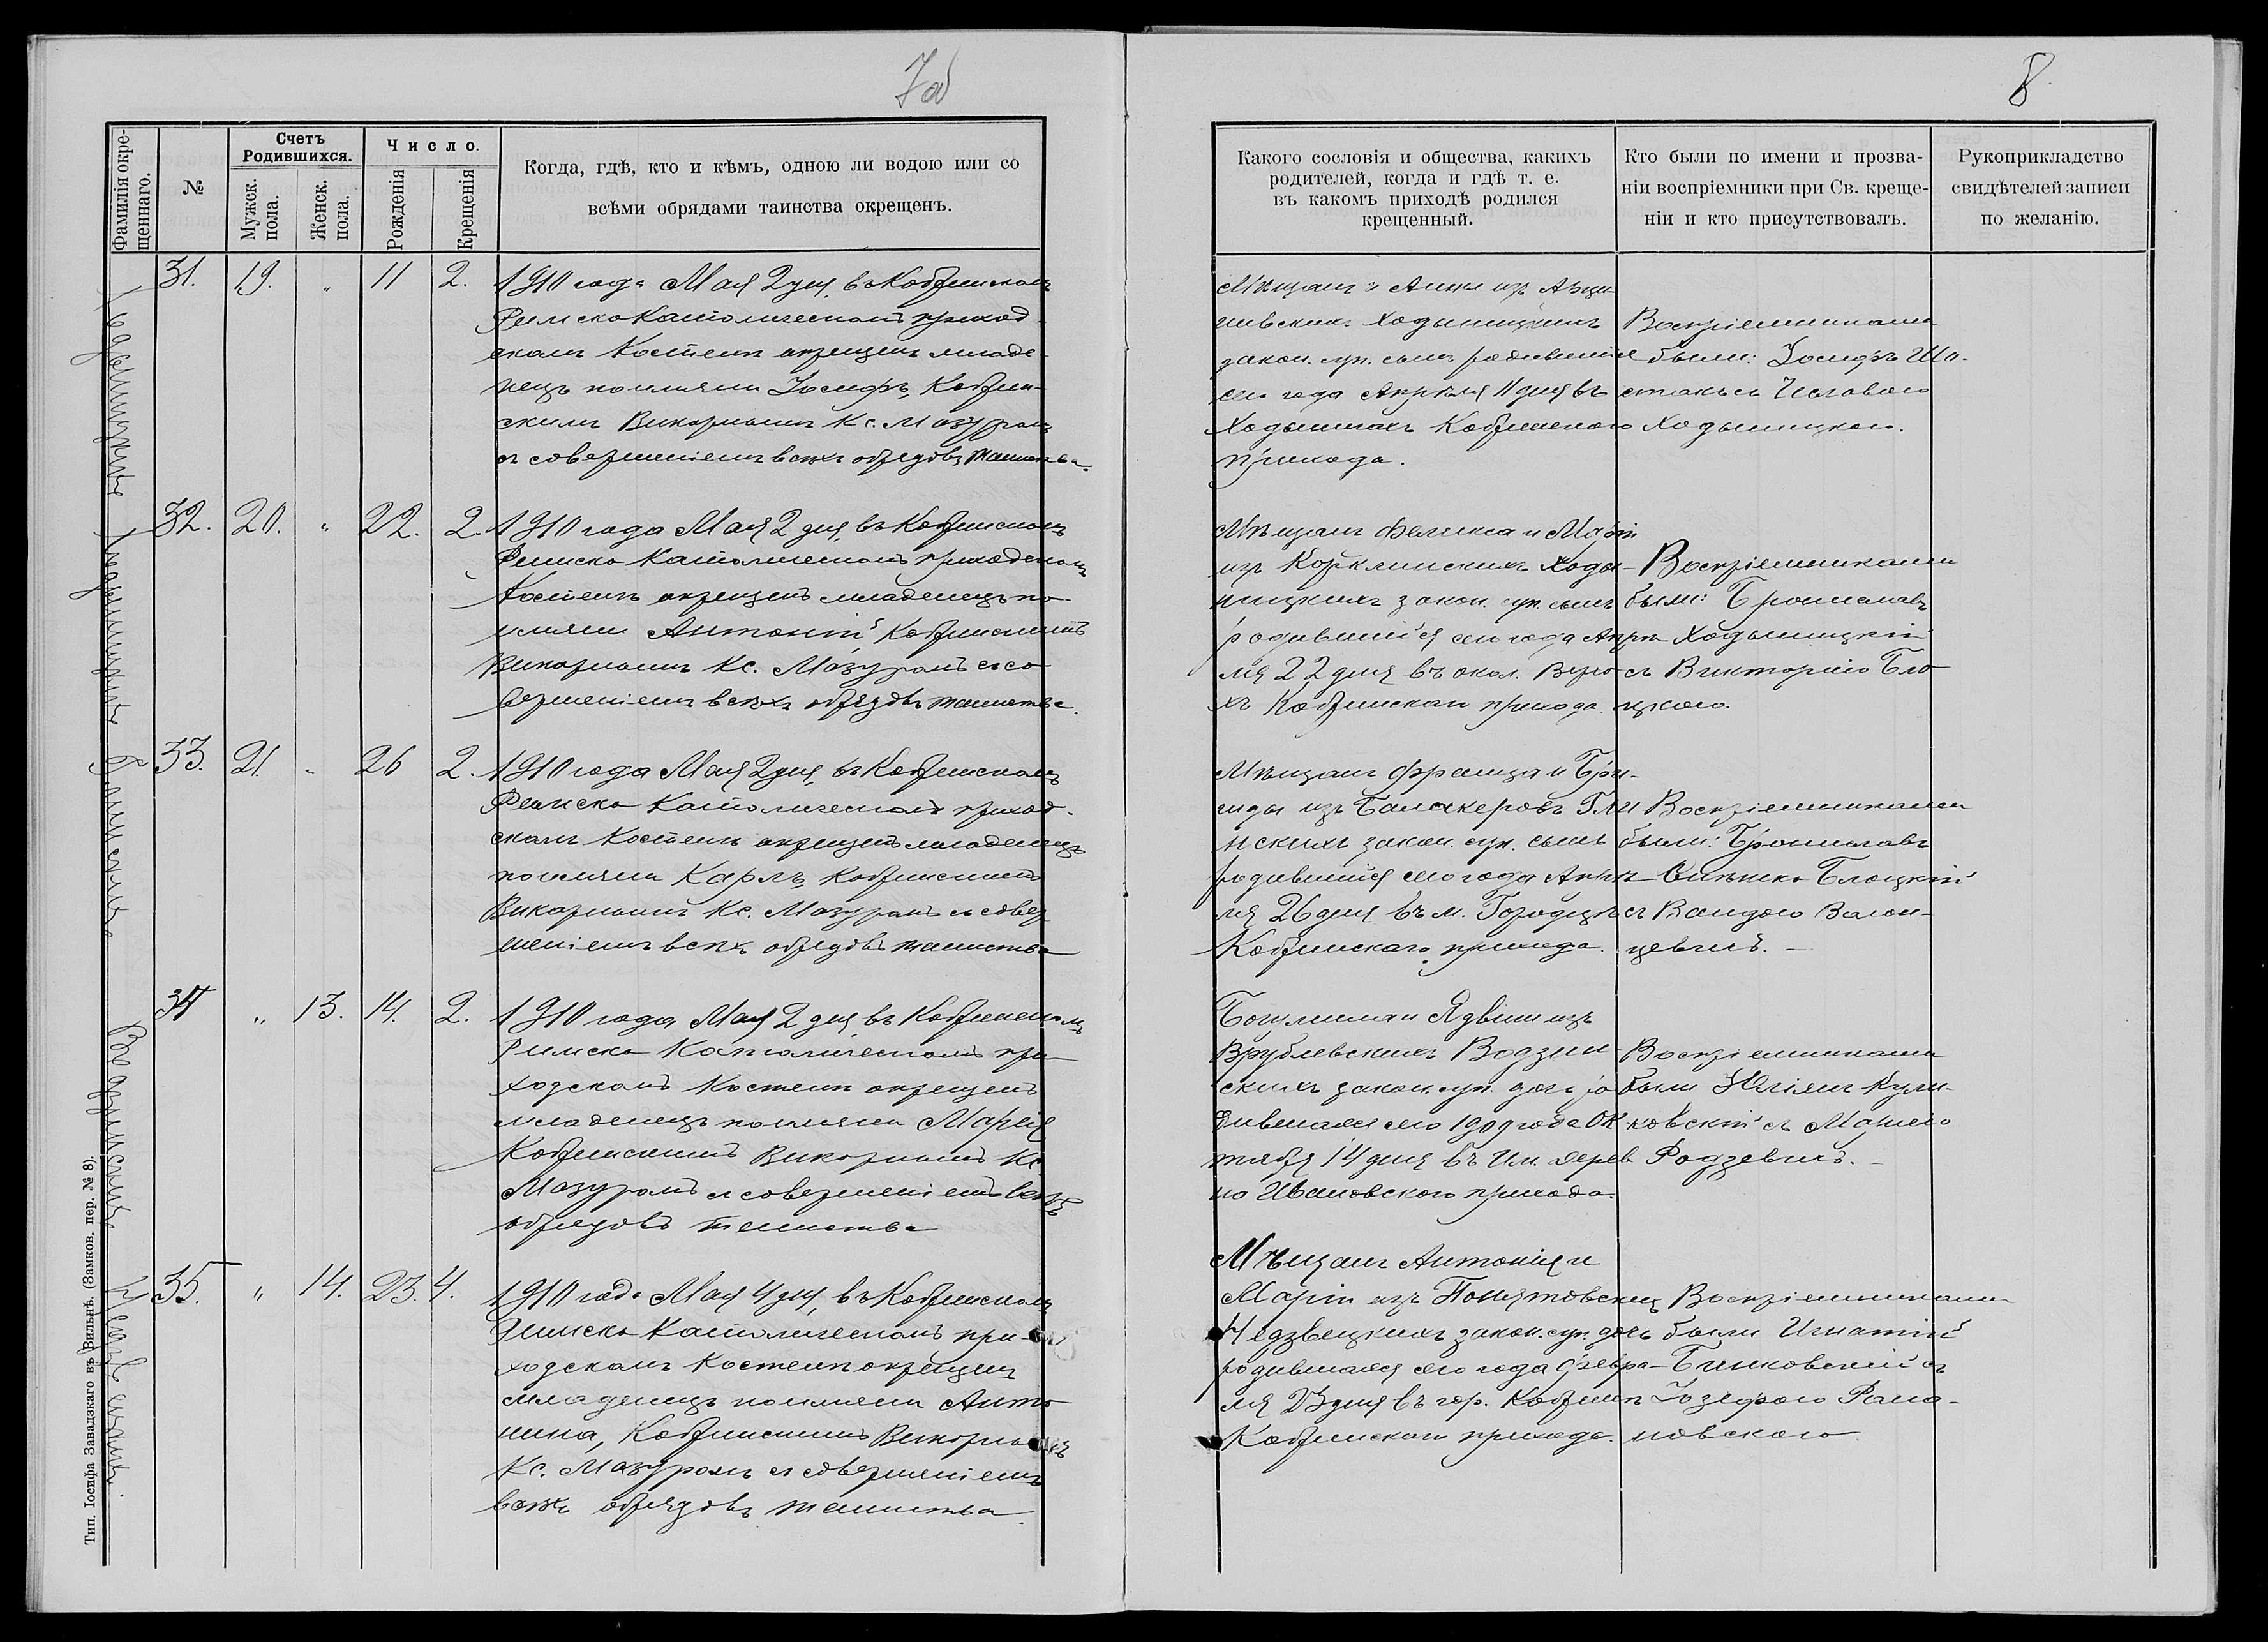 7об
8
Фамилія окре-
щеннаго.
№
Счетъ
Родившихся.
Мужск.
пола.
Женск.
пола.
Число.
Рожденія
Крещенія
Когда, гдѣ, кто и кѣмъ, одною ли водою или со
всѣми обрядами таинства окрещенъ.
Какого сословія и общества, какихъ
родителей, когда и гдѣ т. е.
въ какомъ приходѣ родился
крещенный.
Кто были по имени и прозва-
ніи воспріемники при Св. креще-
ніи и кто присутствовалъ.
Рукоприкладство
свидѣтелей записи
по желанію.
31. 19. „ 11 2.
1910 года Мая 2 дня, въ Кобринскомъ
Римско Католическомъ приход-
скомъ Костелѣ окрещенъ младе-
нецъ по имени Іосифъ, Кобрин-
скимъ Викаріемъ Кс. Мазуромъ
съ совершеніемъ всѣхъ обрядовъ таинства.
Мѣщанъ и Анны изъ
Ходыницкихъ
закон. суп. сынъ родившійся
сего года Апрѣля 11 дня въ
Ходыничахъ Кобринскаго
прихода.
Воспріемниками
были: Іосифъ
Ходыницкою.
32. 20. „ 22. 2.
1910 года Мая 2 дня, въ Кобринскомъ
Римско Католическомъ приходскомъ
Костелѣ окрещенъ младенецъ по
имени Антоній, Кобринскимъ
Викаріемъ Кс. Мазуромъ съ со-
вершеніемъ всѣхъ обрядовъ таинства.
Мѣщанъ Феликса и Маріи
изъ Ходы-
ницкихъ закон. суп. сынъ
родившійся сего года Апрѣ-
ля 22 дня въ окол.
Кобринскаго прихода.
Воспріемниками
были: Брониславъ
Ходыницкій
съ Викторіею Бло-
цкою.
33. 21. „ 26 2.
1910 года Мая 2 дня, въ Кобринскомъ
Римско Католическомъ приход-
скомъ Костелѣ окрещенъ младенецъ
по имени Карлъ, Кобринскимъ
Викаріемъ Кс. Мазуромъ съ совер-
шеніемъ всѣхъ обрядовъ таинства
Мѣщанъ Франца и Бри-
гиды изъ
закон. суп. сынъ
родившійся сего года Апрѣ-
ля 26 дня въ м. Городцѣ
Кобринскаго прихода.
Воспріемниками
были: Брониславъ
Блоцкій
съ Вандою Валон-
цевичъ.
34 „ 13. 14. 2.
1910 года Мая 2 дня въ Кобринскомъ
Римско Католическомъ при-
ходскомъ Костелѣ окрещенъ
младенецъ по имени Марія
Кобринскимъ Викаріемъ Кс.
Мазуромъ съ совершеніемъ всѣхъ
обрядовъ таинства
и Ядвиги изъ
Врублевскихъ Водзин-
скихъ закон. суп. дочь ро-
дившаяся сего 1909 года Ок-
тября 14 дня въ Им.
Ивановскаго прихода.
Воспріемниками
были Юліянъ
съ Маріею
Родзевичъ.
35. „ 14. 23. 4.
1910 года Мая 4 дня, въ Кобринскомъ
Римско Католическомъ при-
ходскомъ Костелѣ окрещенъ
младенецъ по имени Анто-
нина, Кобринскимъ Викаріемъ
Кс. Мазуромъ съ совершеніемъ
всѣхъ обрядовъ таинства.
Мѣщанъ Антонія и
Маріи изъ Понятовскихъ
закон. суп. дочь
родившаяся сего года Февра-
ля 23 дня въ гор. Кобринѣ
Кобринскаго прихода.
Воспріемниками
были Игнатій
Бинковскій съ
Іозефою Рома-
новскою
Тип. Іосифа Завадзкаго въ Вильнѣ. (Замков. пер. № 8).